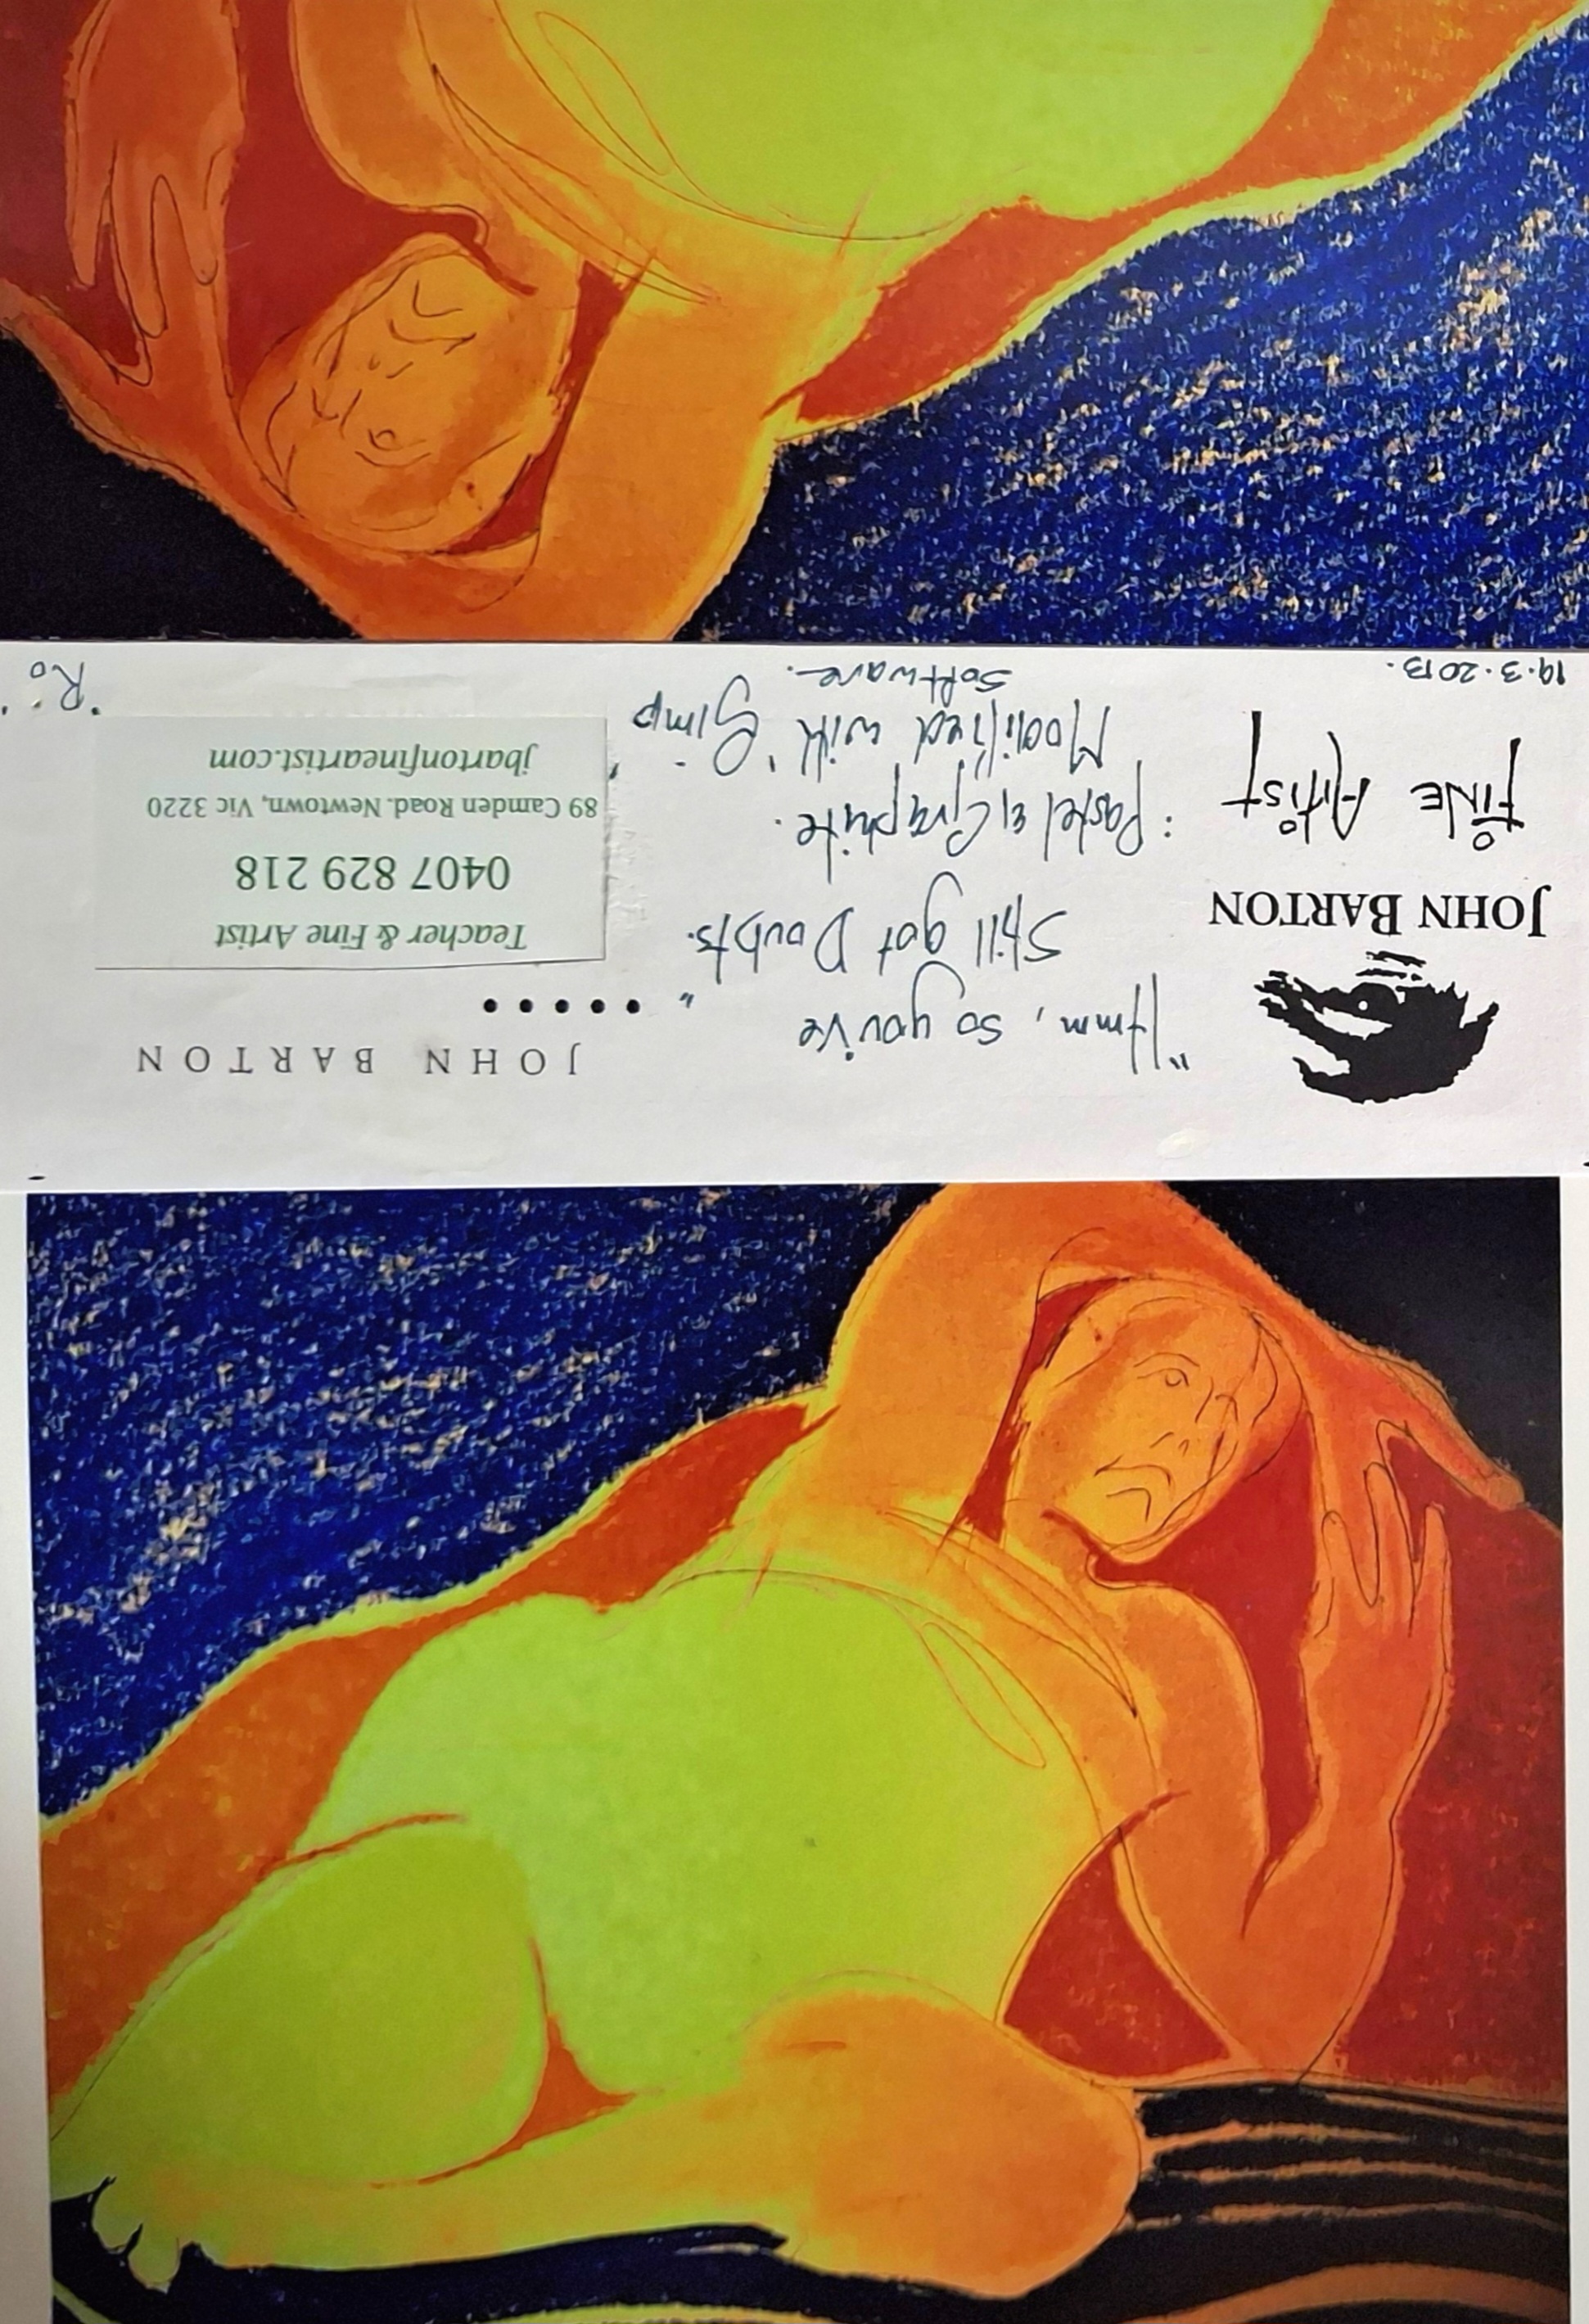 JOHN BARTON
FINE ARTIST
19.3.2013.
"Hmm, so you've
Still got Doubts."
: Pastel & Graphite.
Modified with 'Gimp'
Software.
JOHN BARTON
Teacher & Fine Artist
0407 829 218
89 Camden Road. Newtown, Vic 3220
jbartonfineartist.com